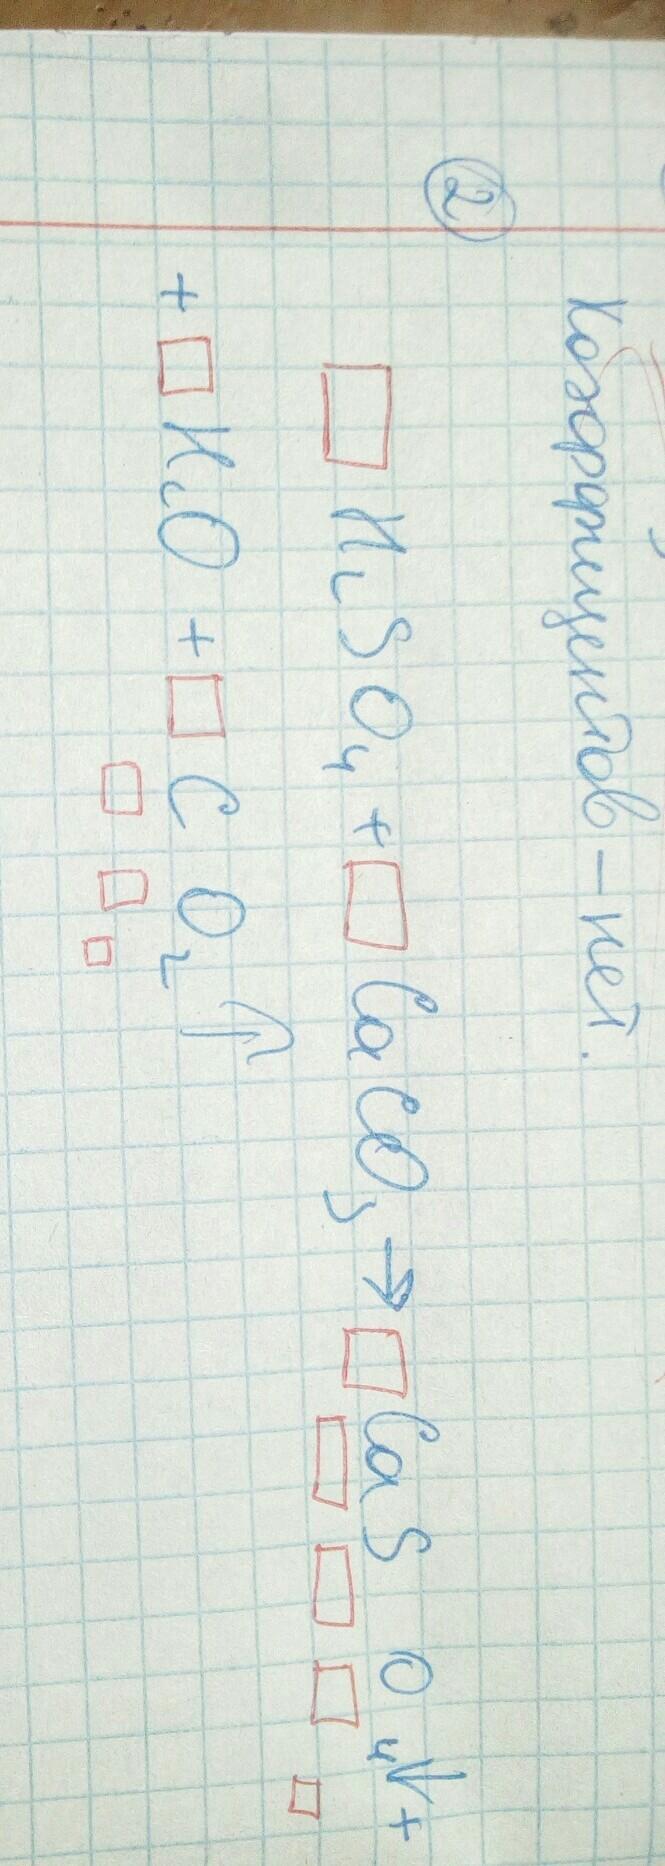 Коэффициентов - нет.
② □ H₂SO₄ + □ CaCO₃ → □ CaSO₄↓ +
+ □ H₂O + □ CO₂↑